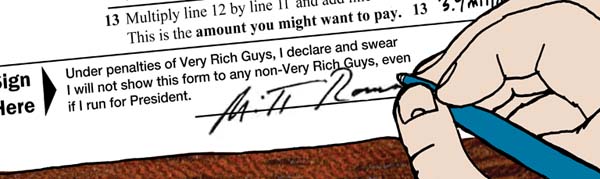 13 Multiply line 12 by line 11 and add line
This is the amount you might want to pay. 13 3.9 mill
Sign Here
Under penalties of Very Rich Guys, I declare and swear
I will not show this form to any non-Very Rich Guys, even
if I run for President.
Mitt Rom